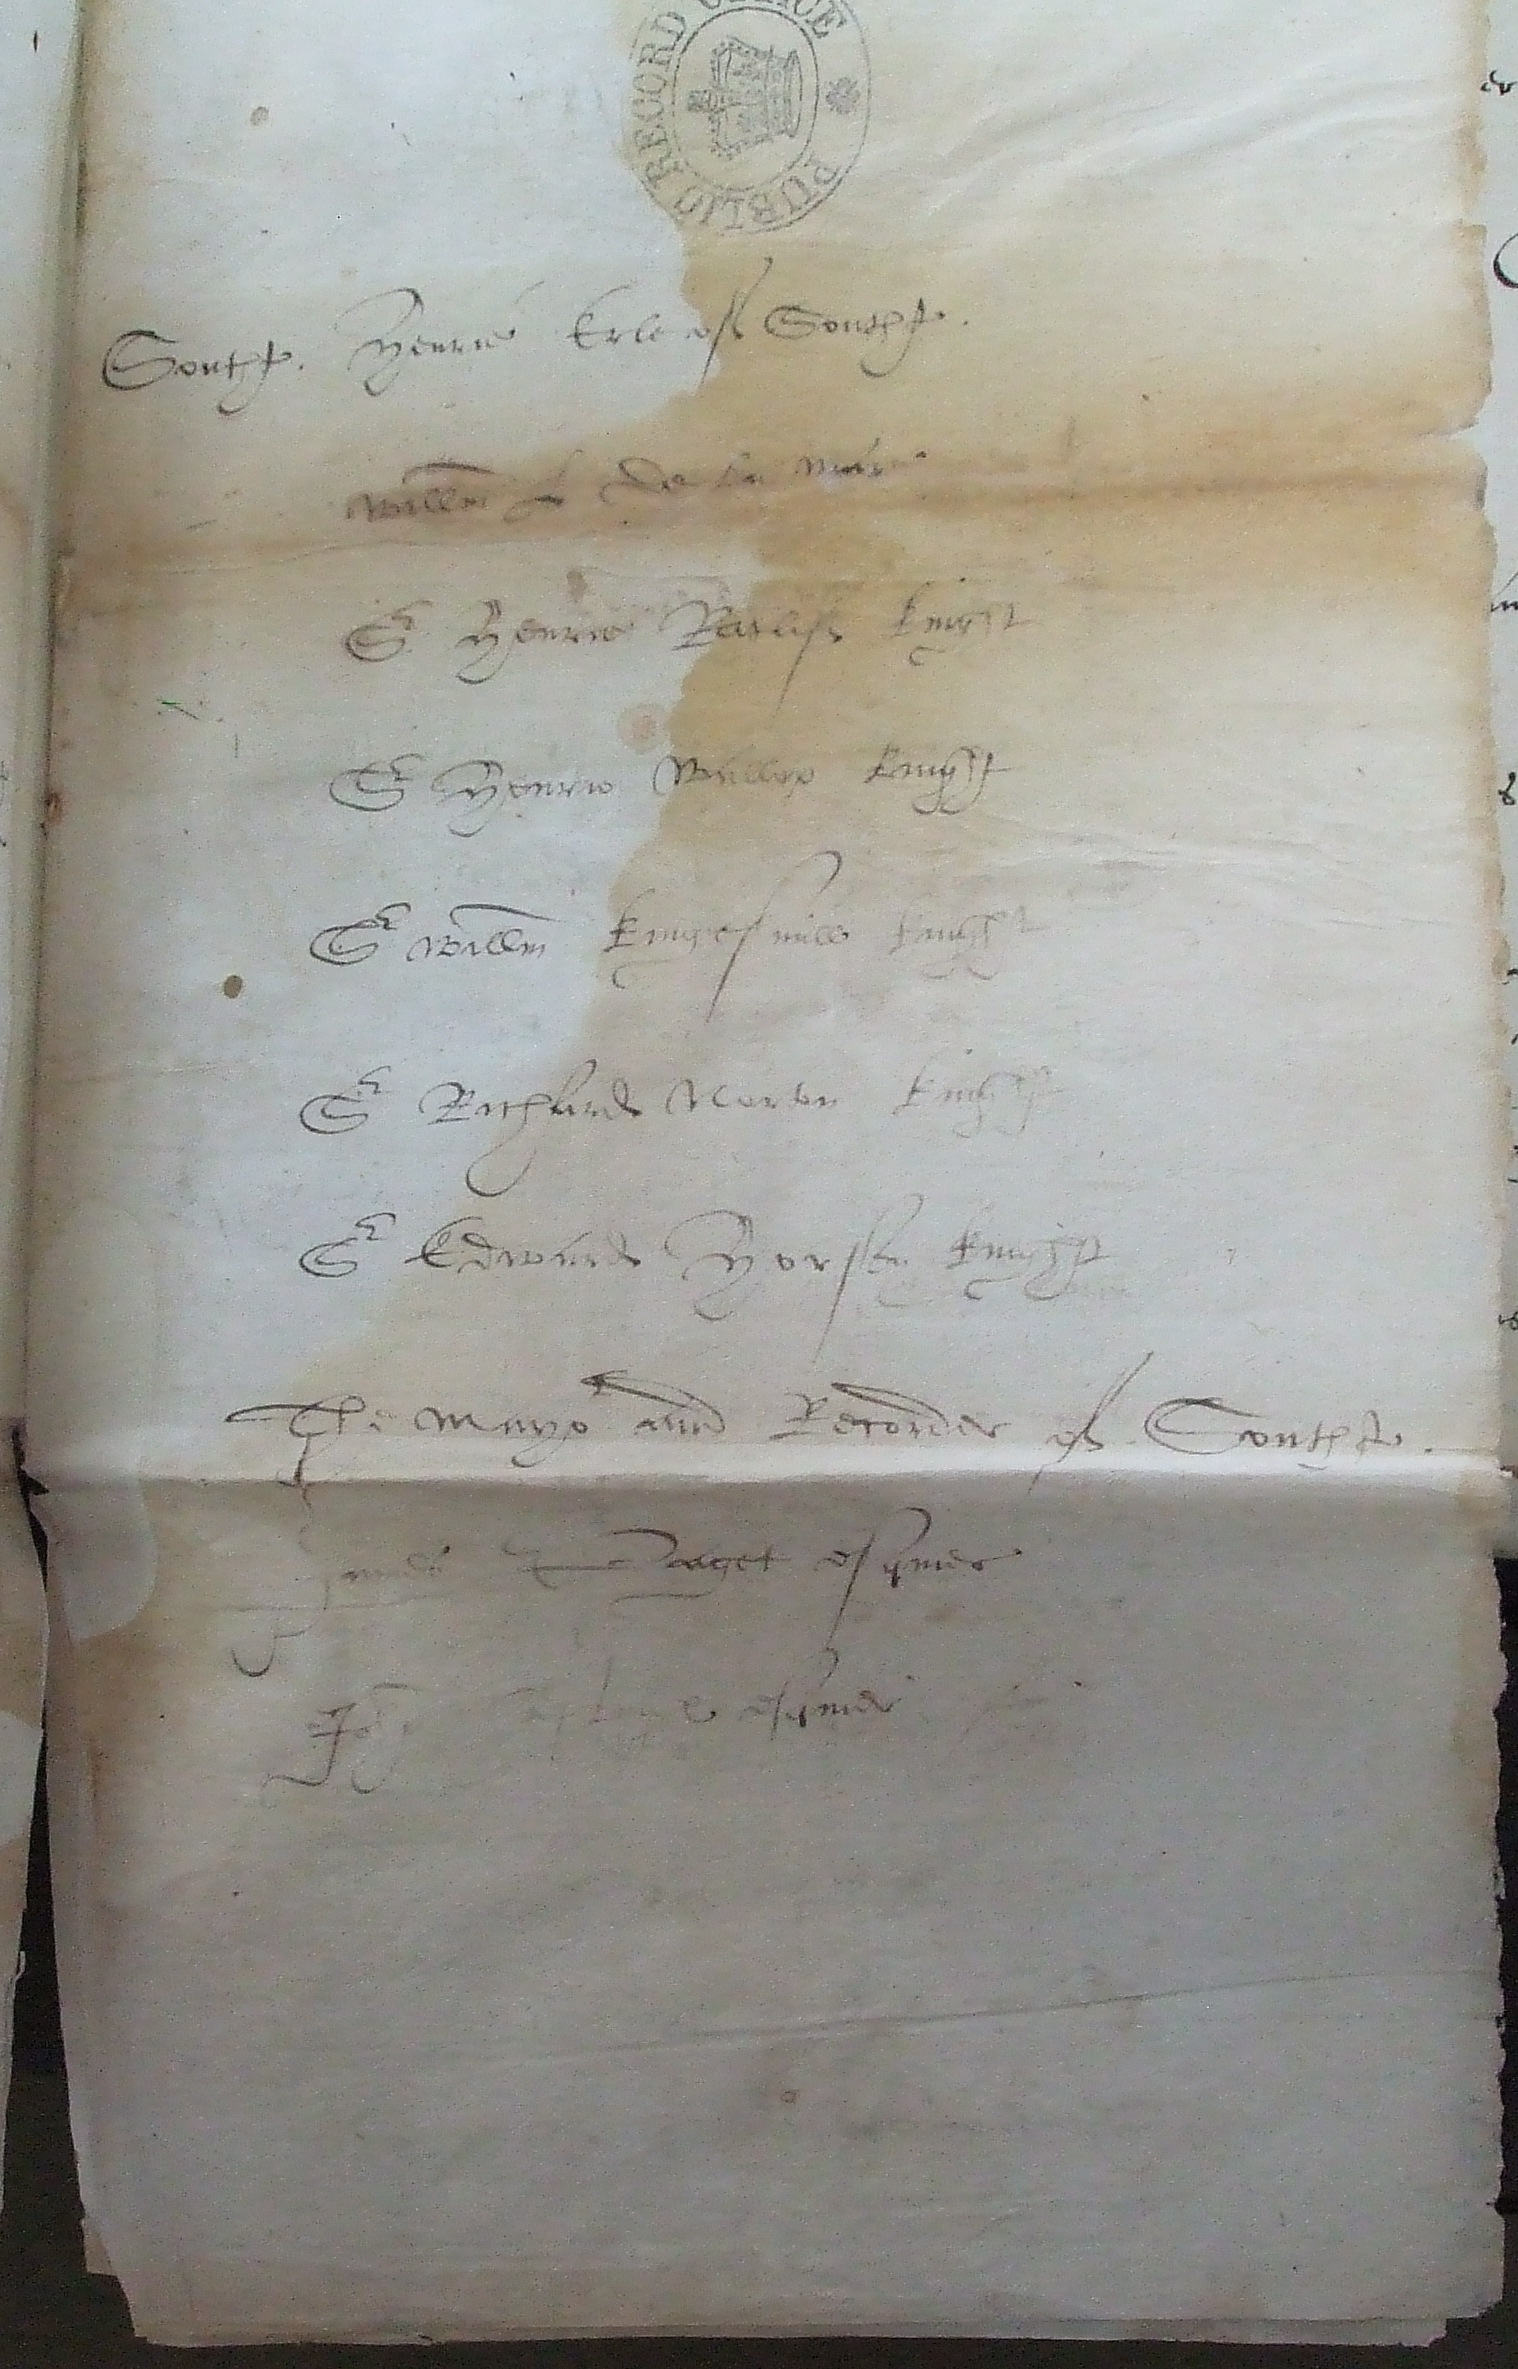 PUBLIC RECORD OFFICE
Southt. Henrie Erle of Southt.
Willm L De La
Sr Henrie Ratclif knight
Sr Henrie Wallop knight
Sr Willm kingesmill knight
Sr Richard Norton knight
Sr Edward Horsey knight
The mayor and Recorder of Southt.
James Paget esquier
esquier